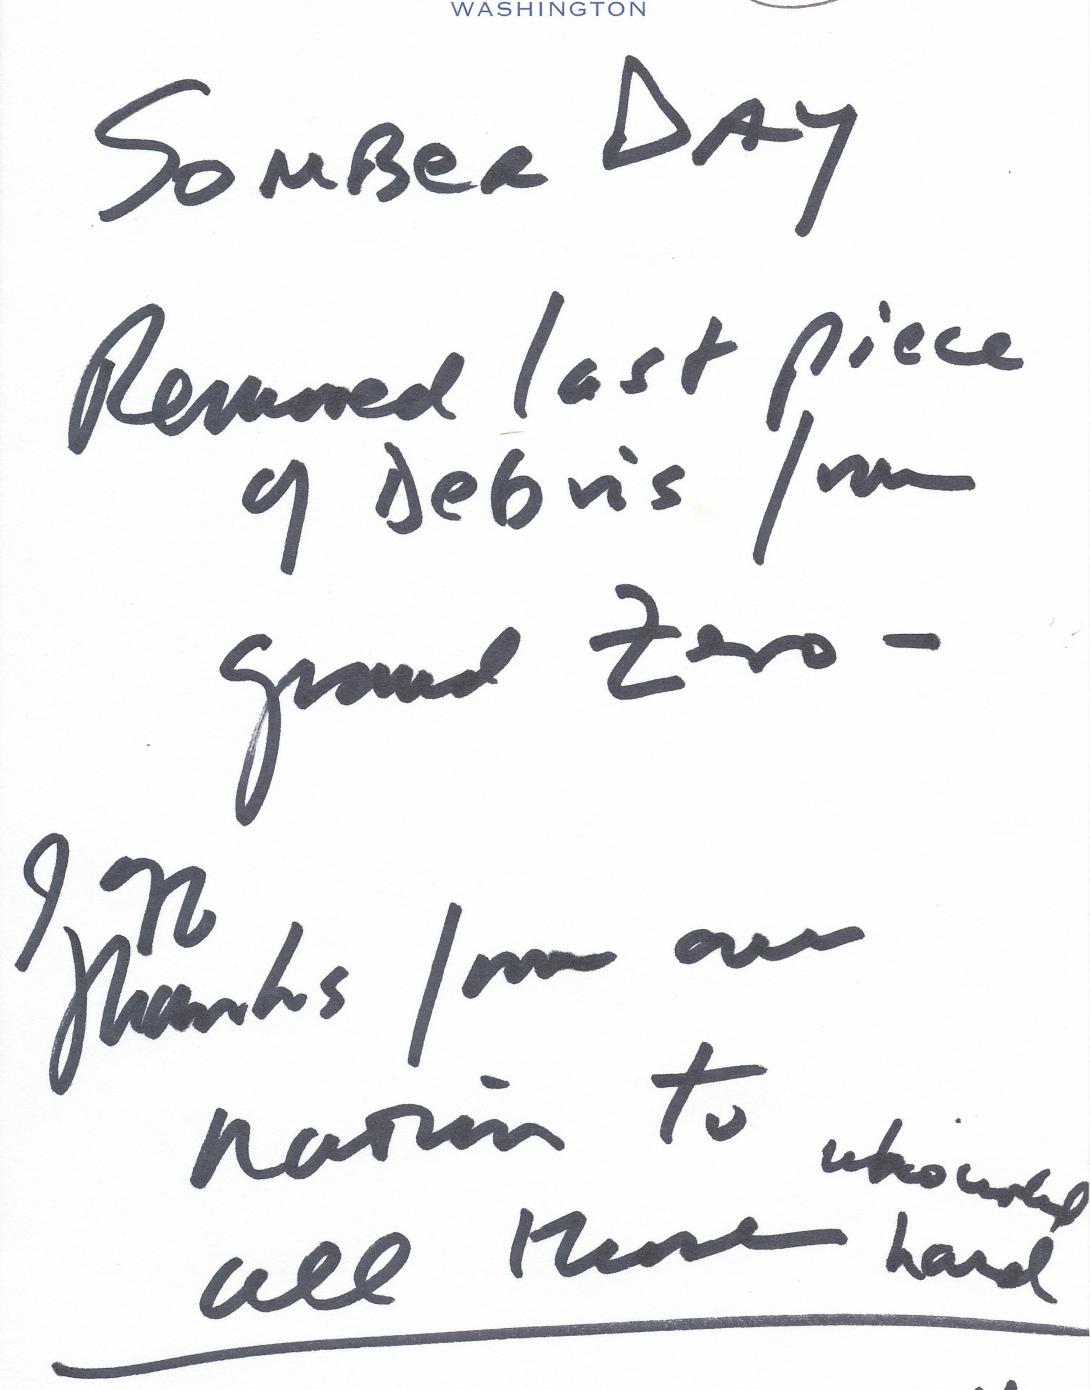 WASHINGTON
SOMBER DAY
Removed last piece
of Debris from
ground Zero -
Thanks from our
nation to
all those who worked
hard